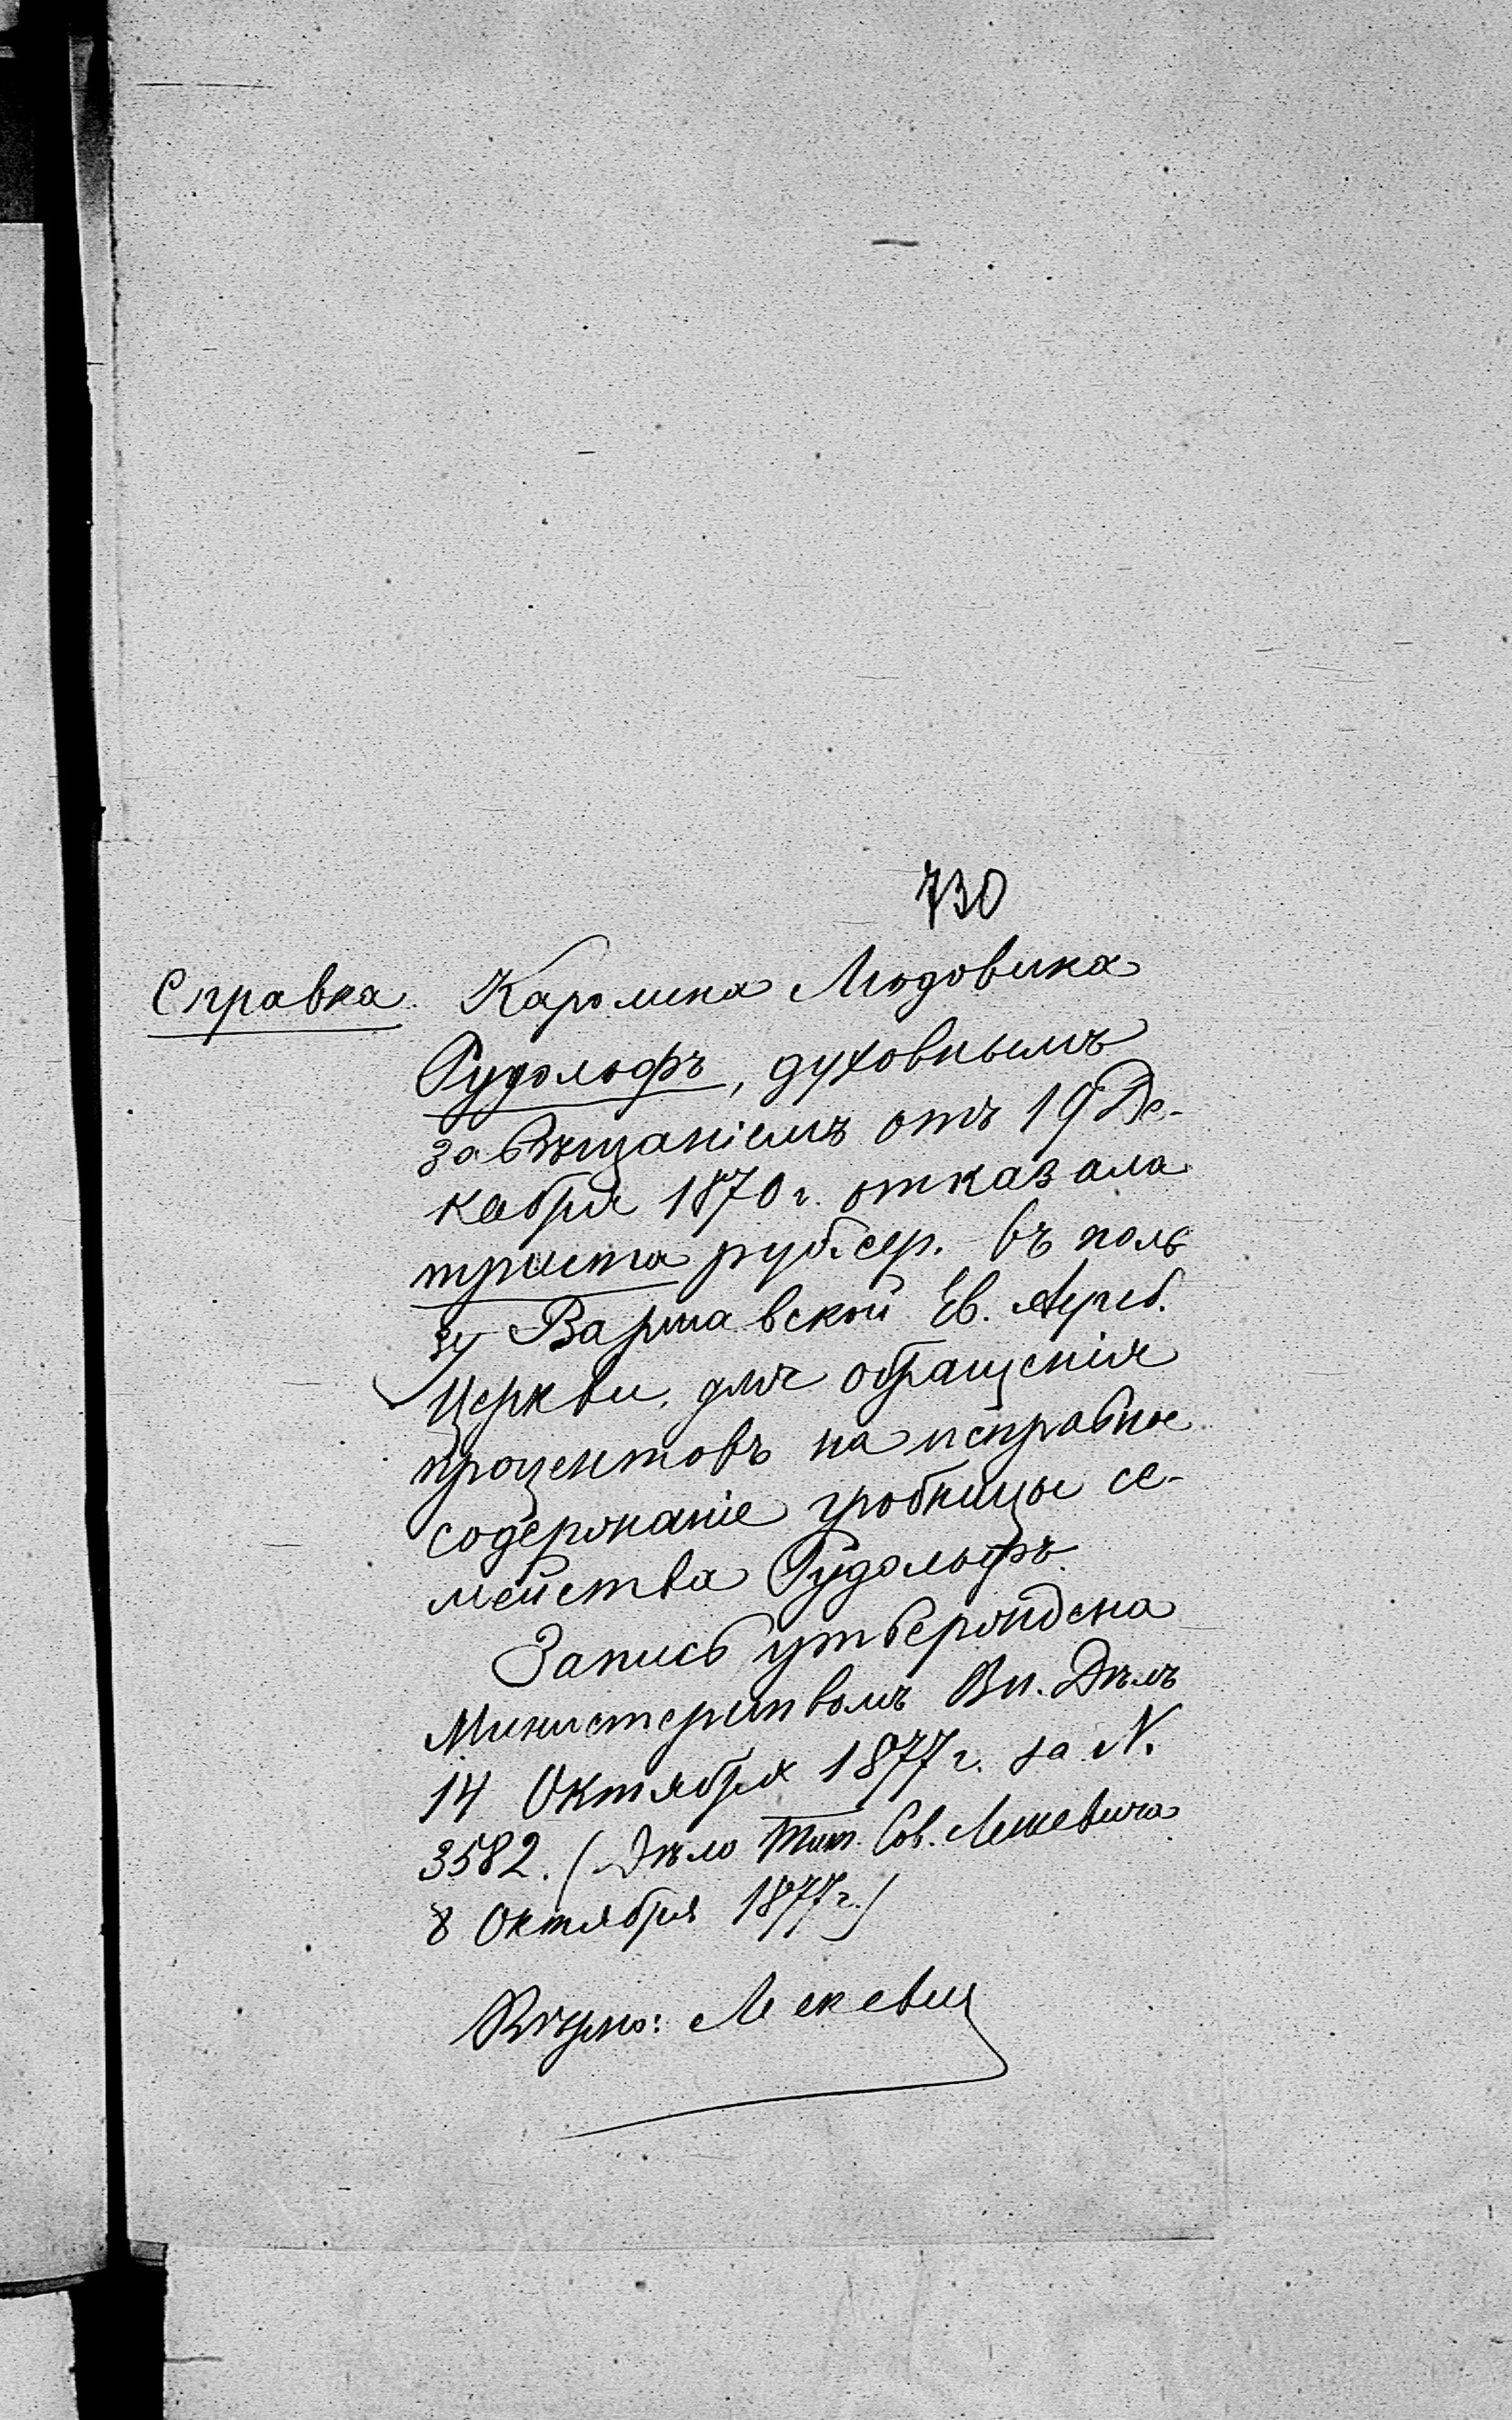 730
Справка. Каролина Людовика
Рудольфъ, духовнымъ
завѣщаніемъ отъ 19 Де-
кабря 1870 г. отказала
триста руб. сер. въ поль
зу Варшавской Ев. Ауγсб.
Церкви, для обращенія
процентовъ на исправное
содержаніе гробницы се-
мейства Рудольфъ.
Запись утверждена
Министерствомъ Вн. Дѣлъ
14 Октября 1877 г. за N.
3582. (Дѣло Тит. Сов.
8 Октября 1877 г.)
Вѣрно: